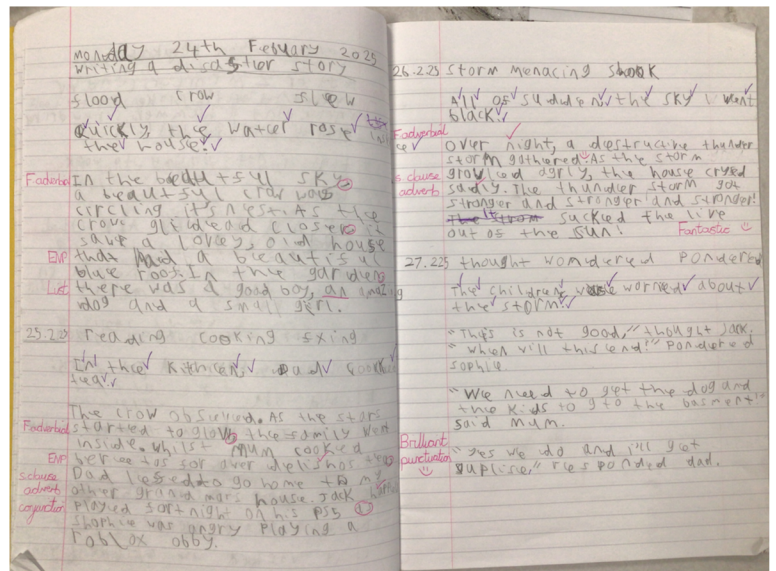 Monday 24th Febuary 2025
writing a disaster story
flood crow flew
Quickly the water rose
the house.
F.adverbial
In the beautful sky
a beautful crow was
circling it's nest. As the
crow glidead closer it
saw a lovey, old house
ENP
that had a beautiful
blue roof. In the garden
List
there was a good boy, an amazing
dog and a small girl.
25.2.25 reading cooking fixing
In the kitchen, Dad cooked
tea.
The crow observed. As the stars
F.adverbial
started to glow the family went
inside. Whilst mum cooked
ENP
s.clause
Dad to go home to
adverb
other grand mars house. Jack
conjoction
played fortnight on his PS5
shophie was angry playing a
roblox obby.
26.2.25 storm menacing shook
All of suddens the sky went
black.
F.adverbial
Over night, a destructive thunder
storm gathered. As the storm
s.clause
growled agrly, the house cryed
adverb
sadly. The thunder storm got
stronger and stronger and stronger!
It sucked the live
out of the sun!
Fantastic
27.2.25 thought wondered pondered
The children were worried about
the storm.
"This is not good," thought Jack.
"When will this end?" Pondered
sophie.
"We need to get the dog and
the kids to gto the basment!"
said mum.
Brilliant
punctuation
"Yes we do and i'll get
suplise," responded dad.